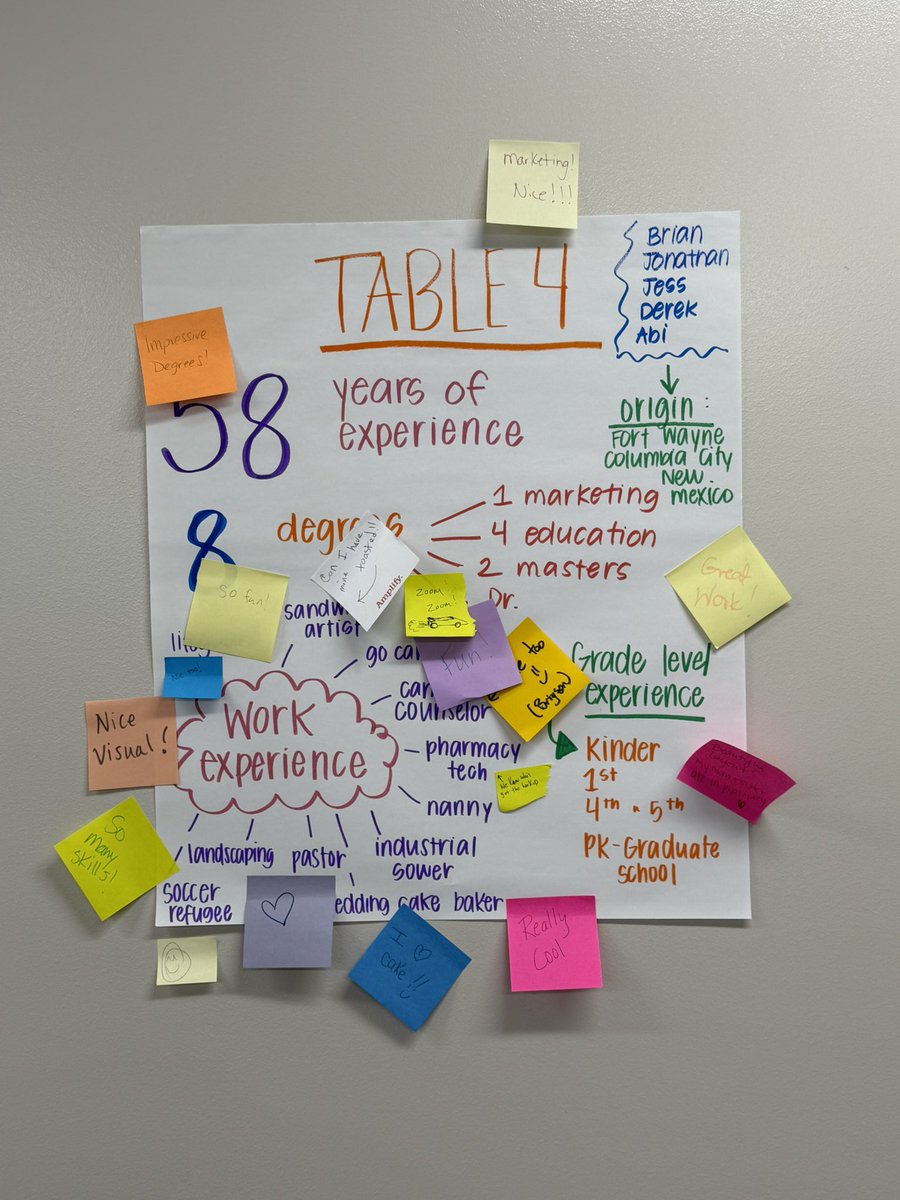 Marketing!
Nice!!!
TABLE 4
Brian
Jonathan
Jess
Derek
Abi
Impressive
Degrees!
58
years of
experience
origin:
Fort Wayne
Columbia City
New
mexico
8
degrees
1 marketing
4 education
2 masters
Dr.
Can I have
mine toasted!!
Amplify.
Zoom!
Zoom!
So fun!
Great
Work!
sandw
artist
go ca
Fun!
too
Grade level
experience
Work
experience
counselor
pharmacy
tech
nanny
industrial
sower
pastor
landscaping
soccer
refugee
edding cake baker
Kinder
1st
4th • 5th
PK-Graduate
school
Nice
Visual!
So
many
skills!
I ♡
cake!!
Really
Cool